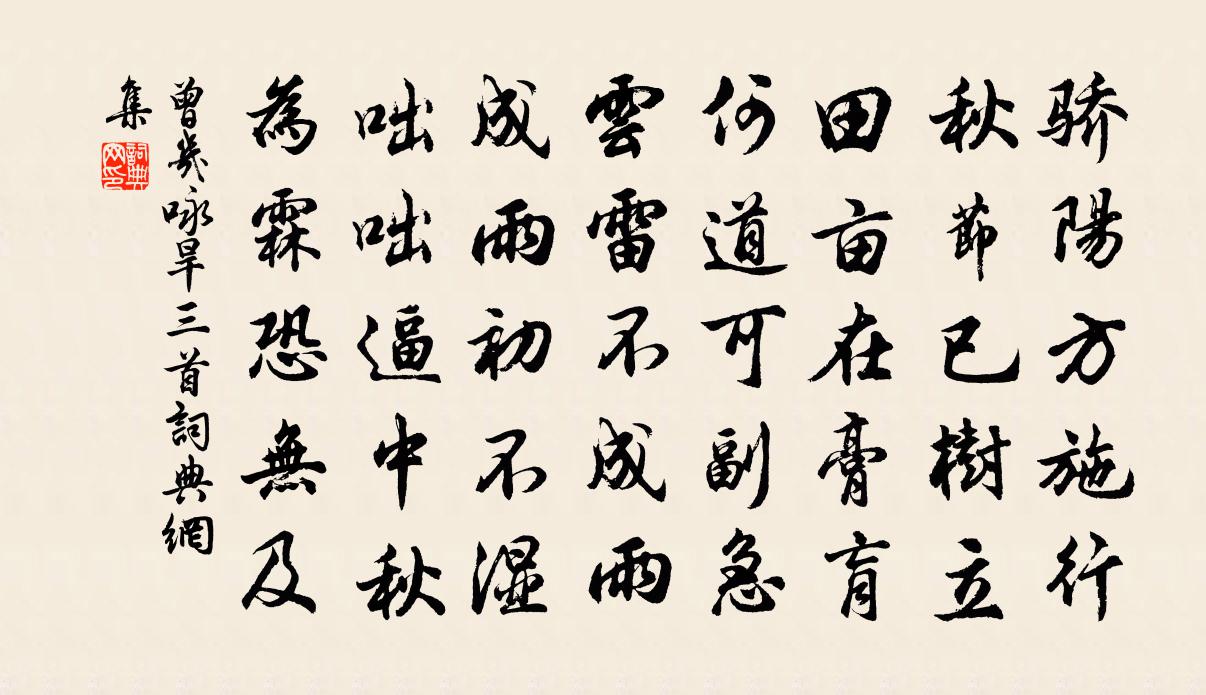 骄陽方施行
秋節已樹立
田亩在膏肓
何道可副急
雲雷不成雨
成雨初不湿
咄咄逼中秋
為霖恐無及
曾幾咏旱三首詞典網
集
詞典
网印